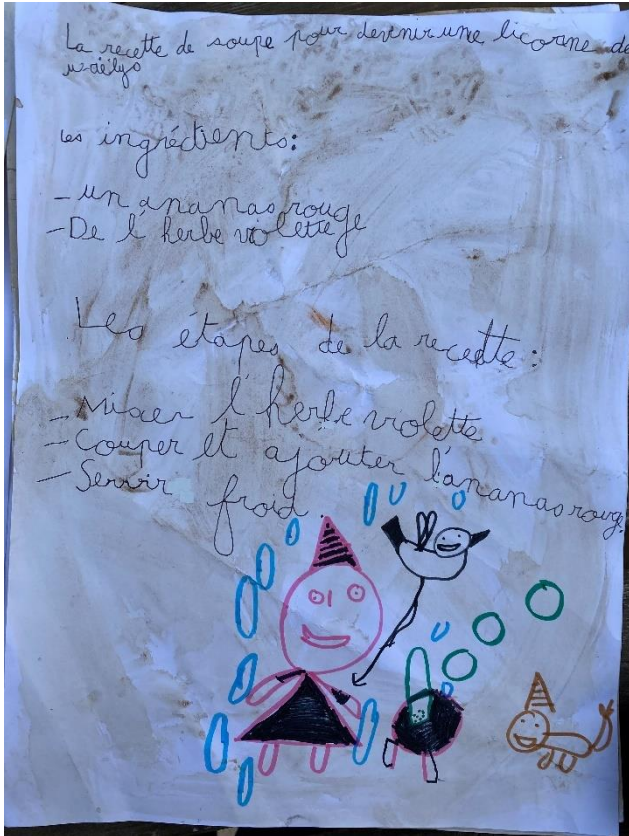 La recette de soupe pour devenir une licorne de
Maëlys
Les ingrédients:
- un ananas rouge
- De l'herbe violette
Les étapes de la recette:
- Mixer l'herbe violette
- Couper et ajouter l'ananas rouge
- Servir froid.